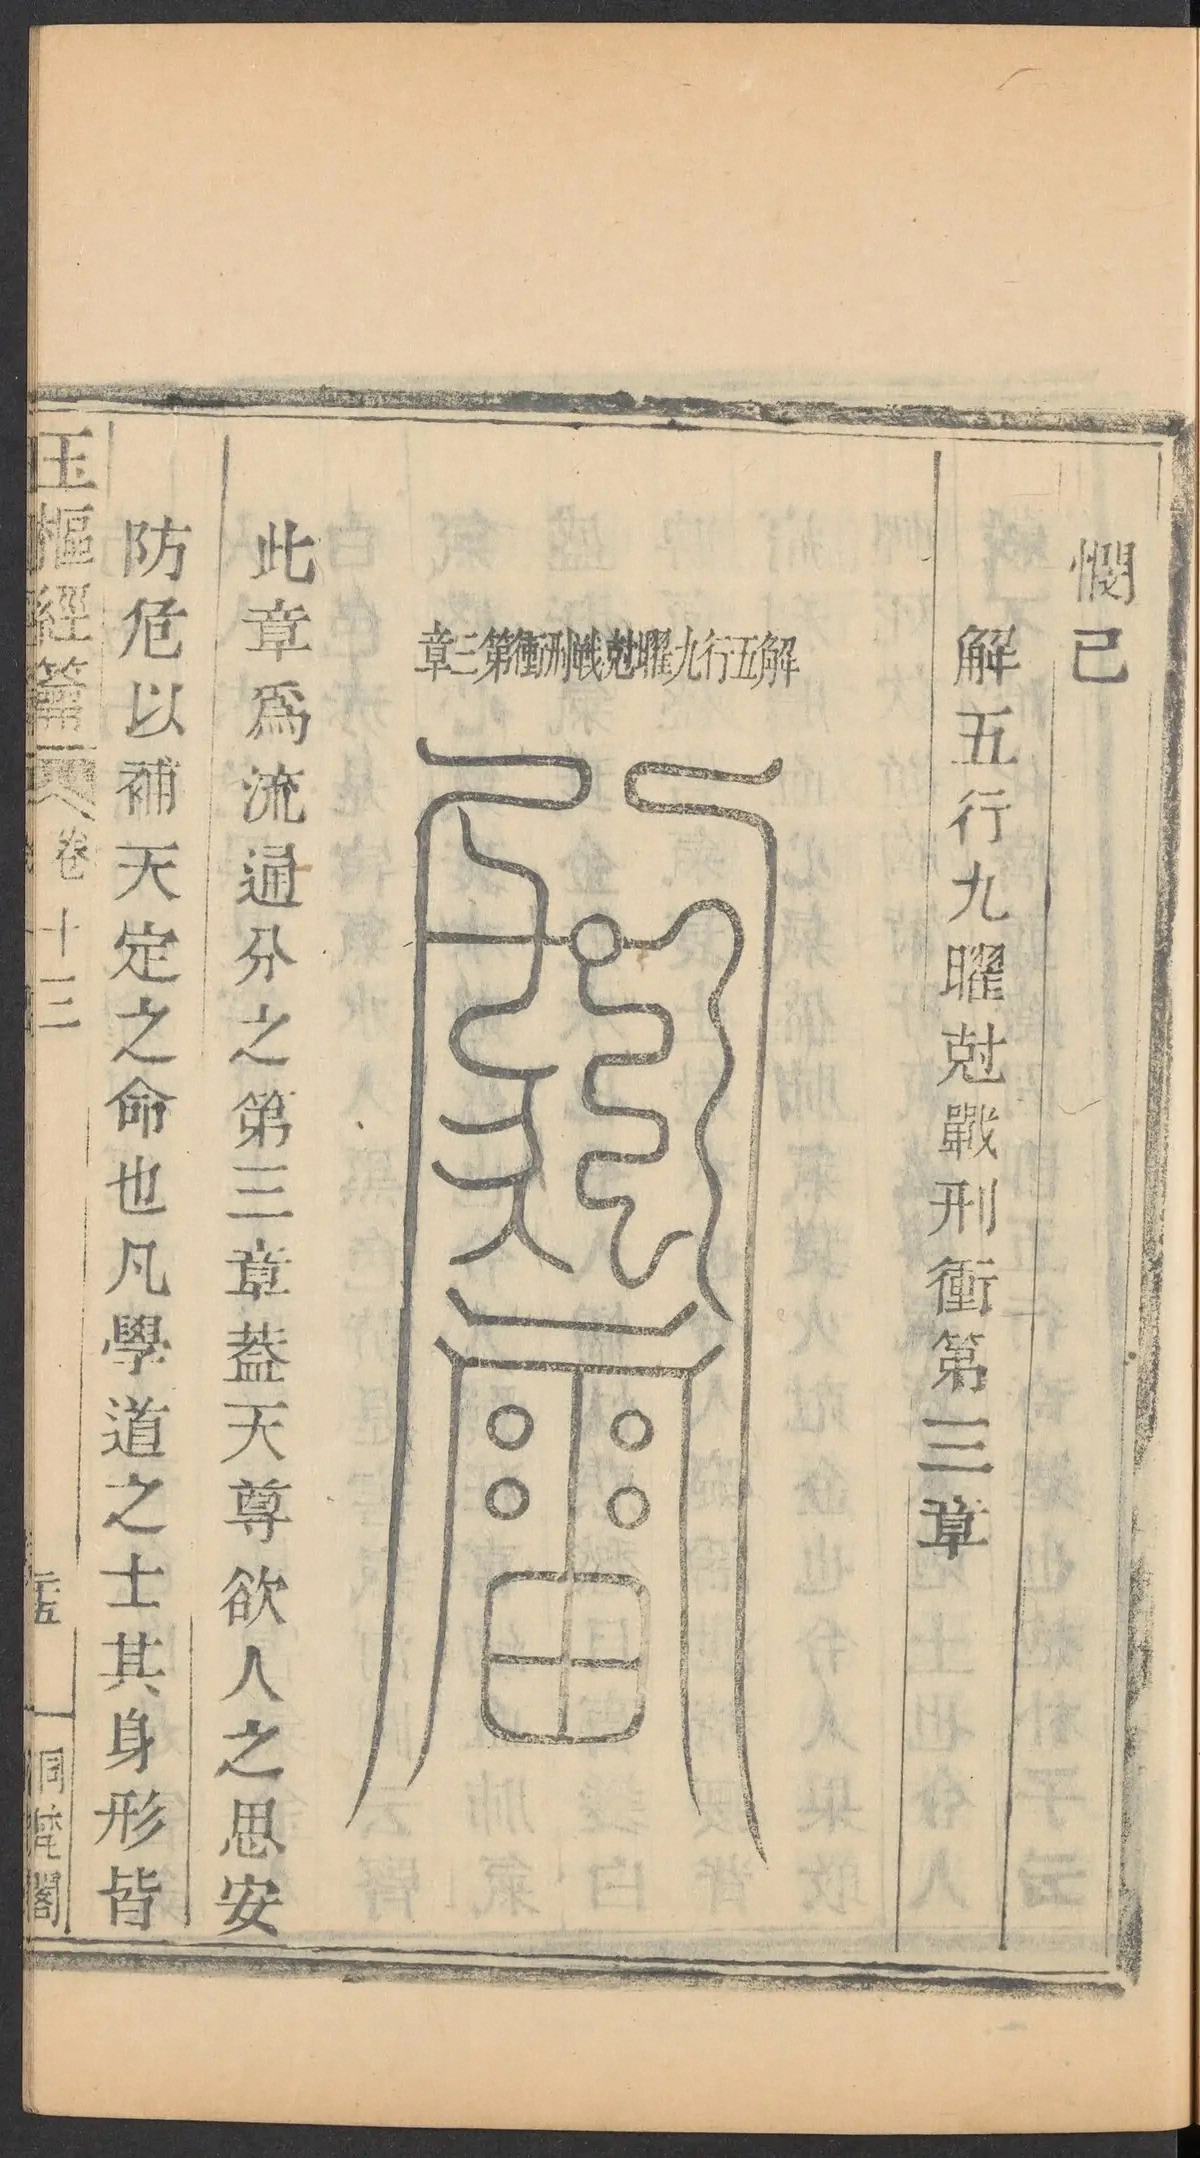 憫已
解五行九曜尅戰刑衝第三章
解五行九曜尅戰刑衝第三章
此章爲流通分之第三章葢天尊欲人之思安
防危以補天定之命也凡學道之士其身形皆
玉樞經籥
卷十三
梵閣